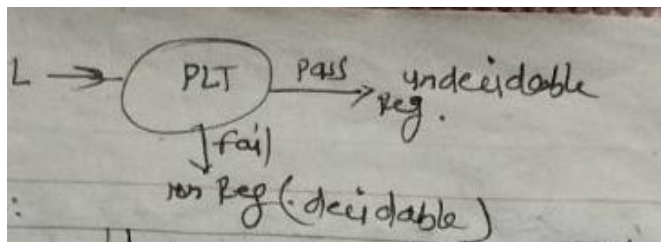 L PLT pass undecidable
Reg.
fail
non Reg (decidable)
: